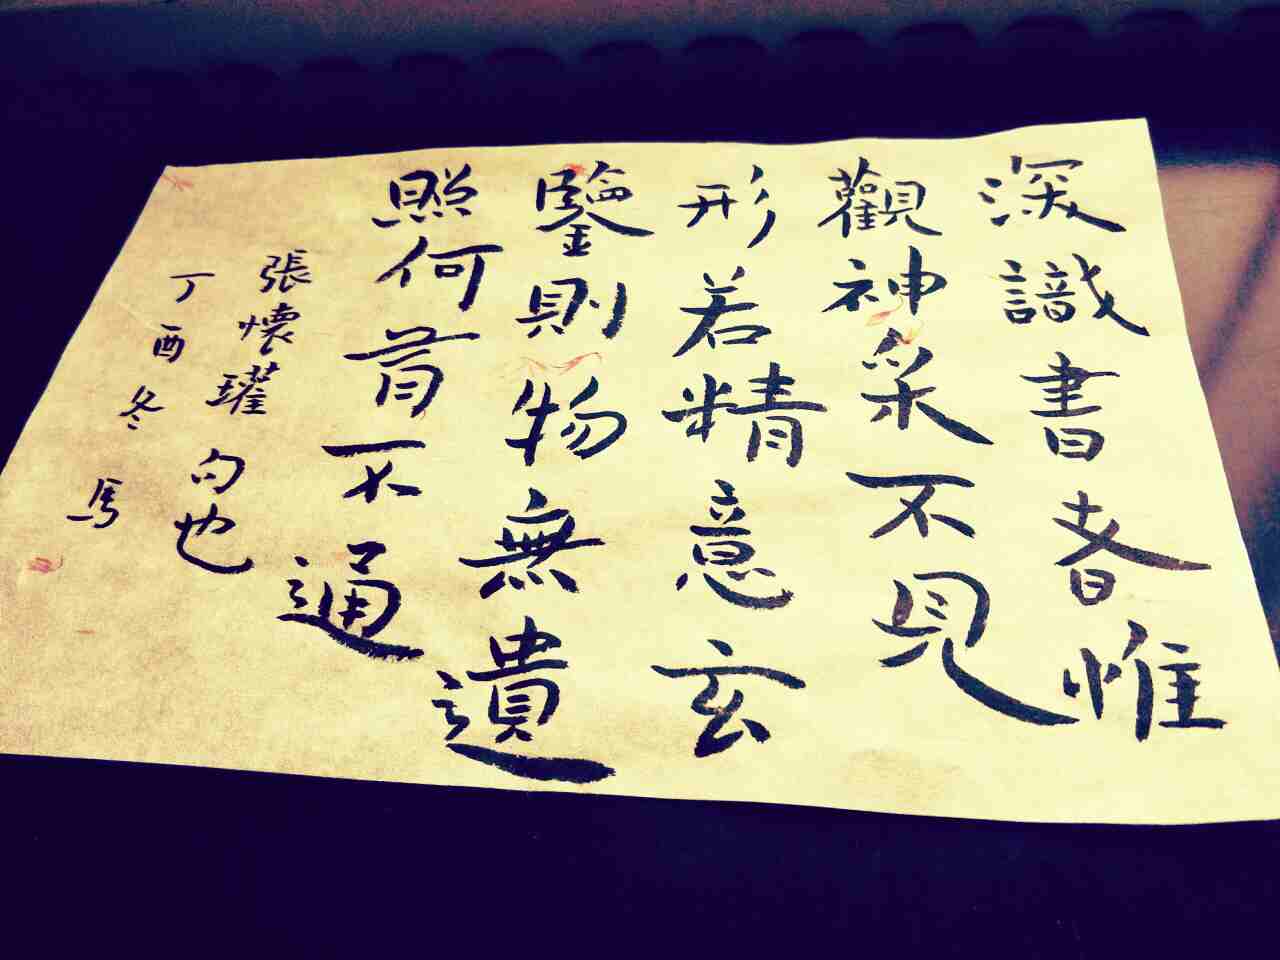 深識書者惟
觀神采不見
形若精意玄
鑒則物無遺
照何不通
張懷瓘句也
丁酉冬馬